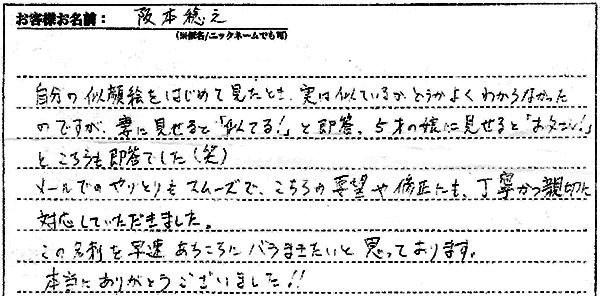 お客様お名前： 阪本穂之
(※仮名/ニックネームでも可)
自分の似顔絵をはじめて見たとき、実は似ているかどうかよくわからなかった
のですが、妻に見せると「似てる！」と即答、5才の娘に見せると「お父ニン！」
とこちらも即答でした（笑）
メールでのやりとりもスムーズで、こちらの要望や修正にも、丁寧かつ親切に
対応していただきました。
この名刺を早速あちこちにバラまきたいと思っております。
本当にありがとうございました！！